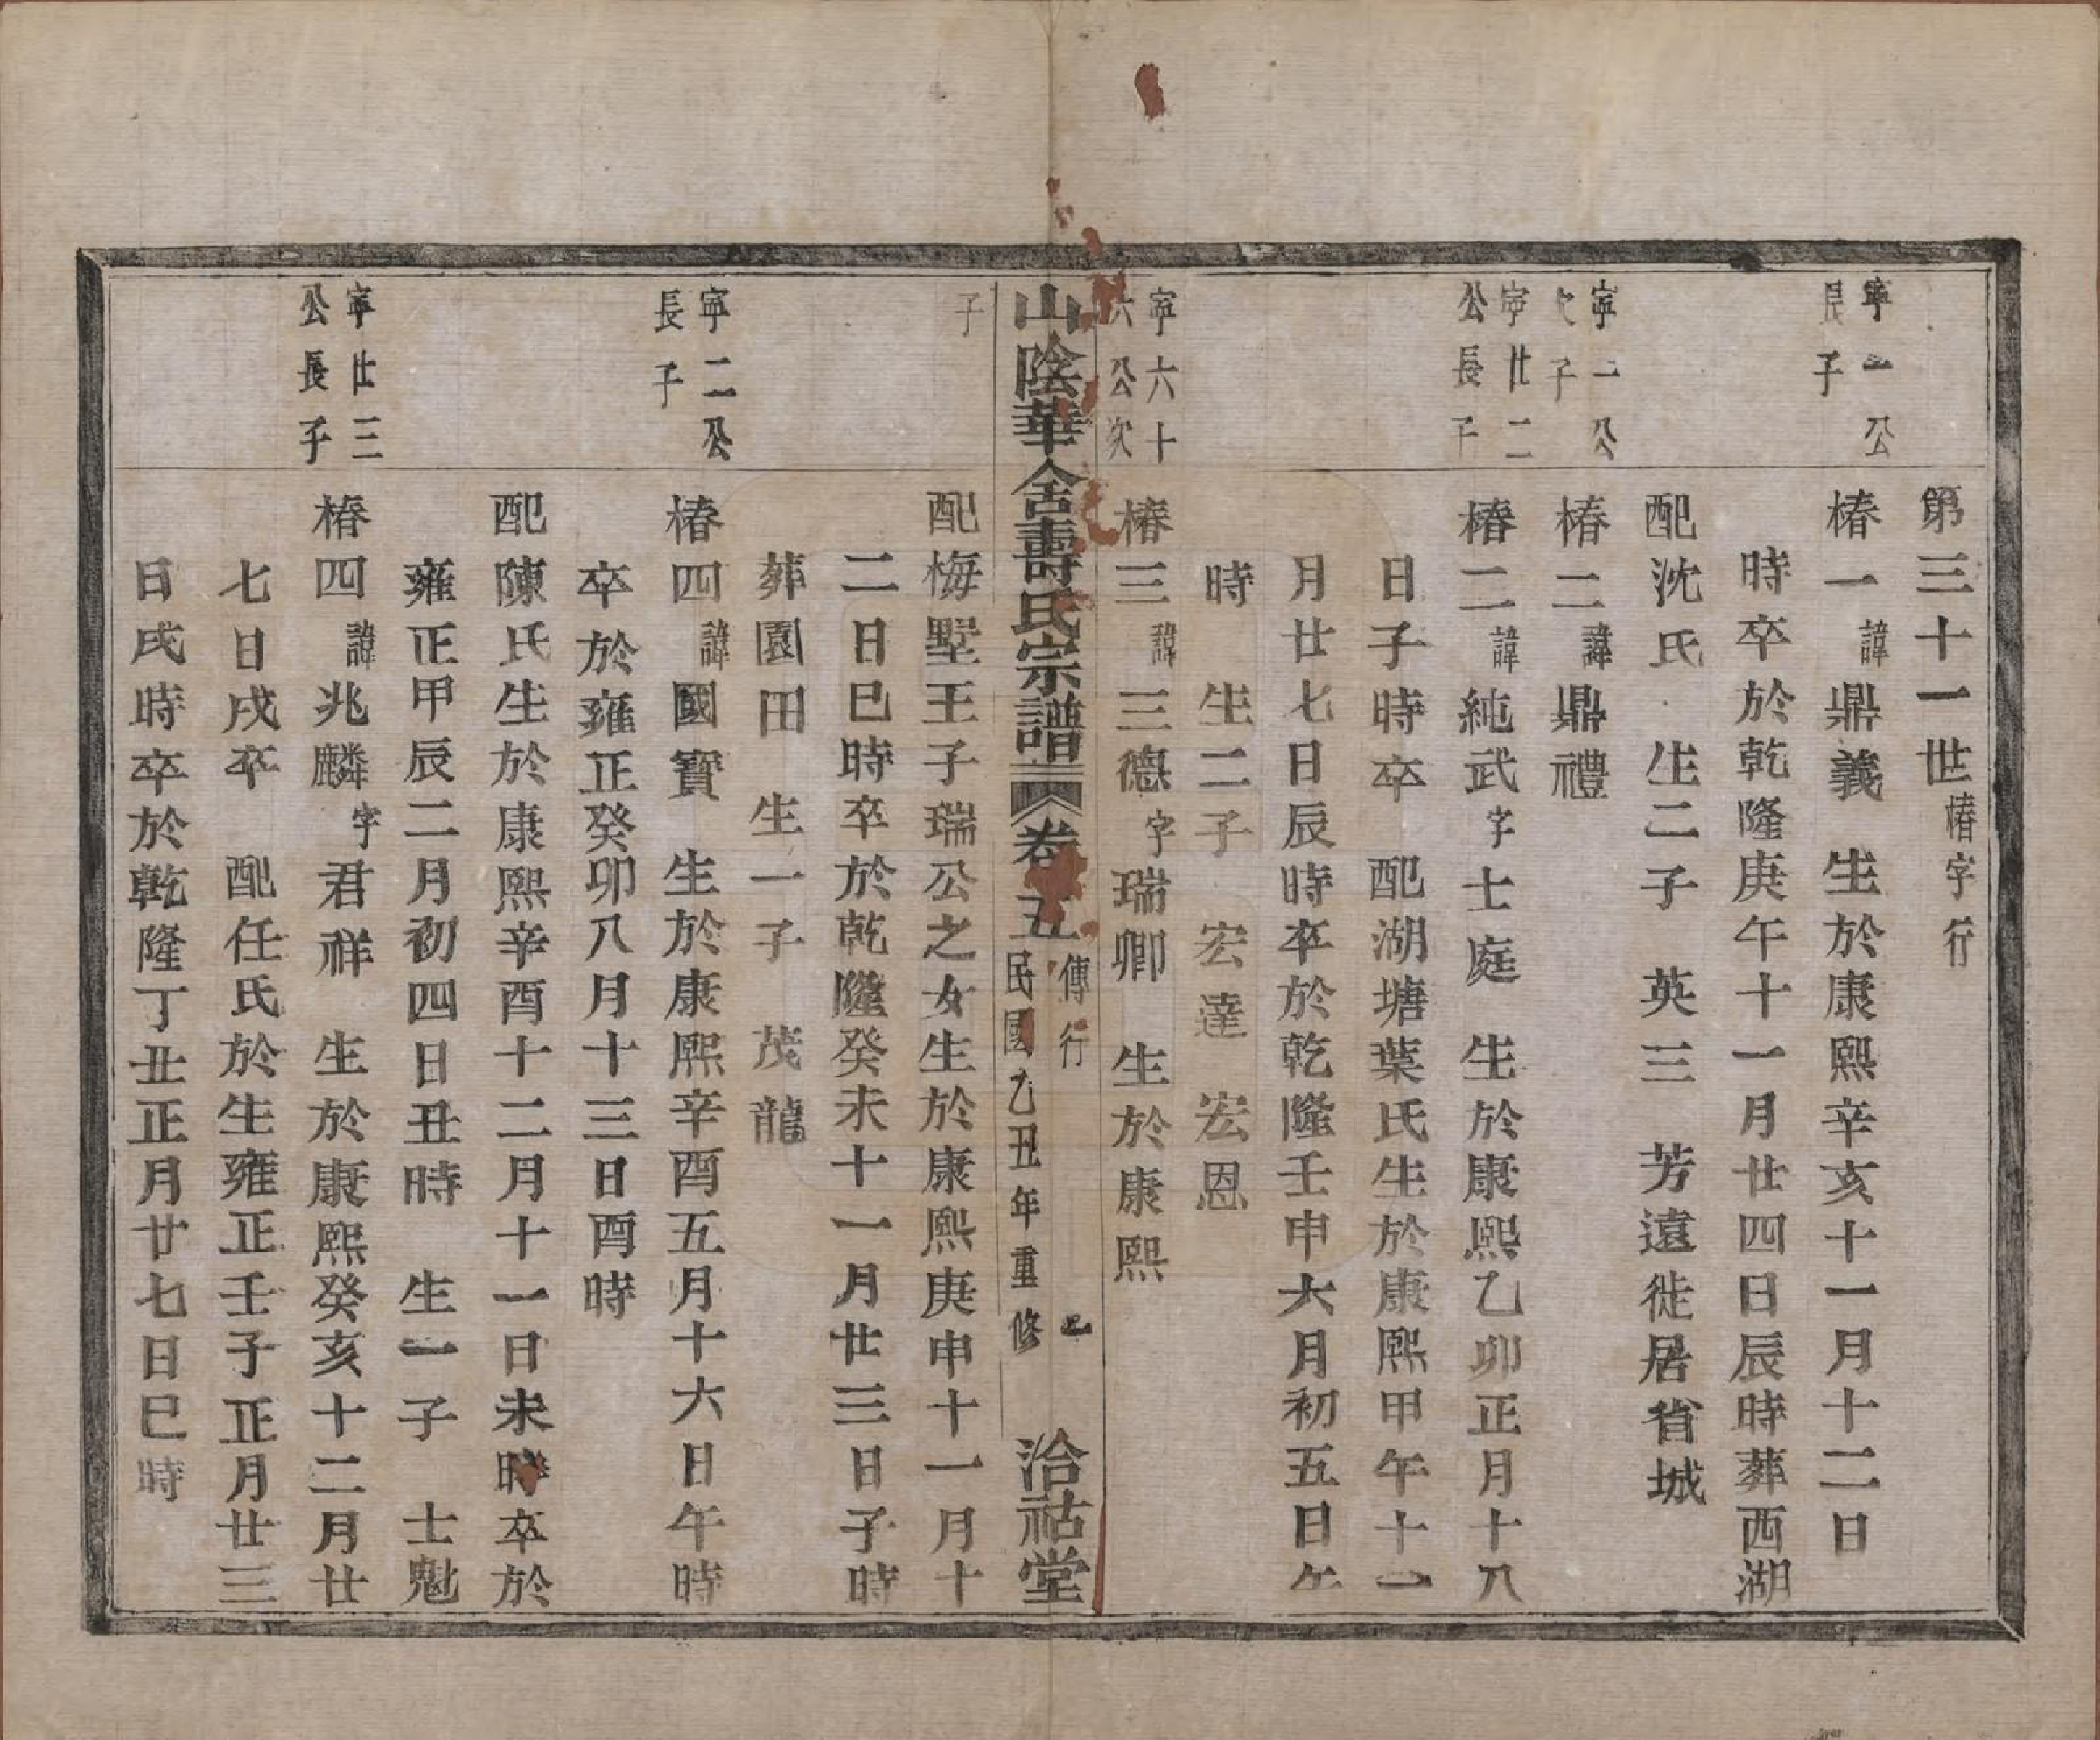 第三十一世椿字行
寧一公
長子
椿一諱鼎義 生於康熙辛亥十一月十二日
時卒於乾隆庚午十一月廿四日辰時葬西湖
配沈氏 生二子 英三 芳遠徙居省城
寧一公
次子
椿二諱鼎禮
寧廿二
公長子
椿二諱純武字士庭 生於康熙乙卯正月十八
日子時卒 配湖塘葉氏生於康熙甲午十一
月廿七日辰時卒於乾隆壬申六月初五日午
時 生二子 宏達 宏恩
寧六十
六公次
椿三諱三德字瑞卿 生於康熙
山陰華舍壽氏宗譜 卷五 傳行 民國乙丑年重修 洽祜堂
子
配梅墅王子瑞公之女生於康熙庚申十一月十
二日巳時卒於乾隆癸未十一月廿三日子時
葬園田 生一子 茂龍
寧二公
長子
椿四諱國寶 生於康熙辛酉五月十六日午時
卒於雍正癸卯八月十三日酉時
配陳氏生於康熙辛酉十二月十一日未時卒於
雍正甲辰二月初四日丑時 生一子 士魁
寧廿三
公長子
椿四諱兆麟字君祥 生於康熙癸亥十二月廿
七日戌卒 配任氏於生雍正壬子正月廿三
日戌時卒於乾隆丁丑正月廿七日巳時